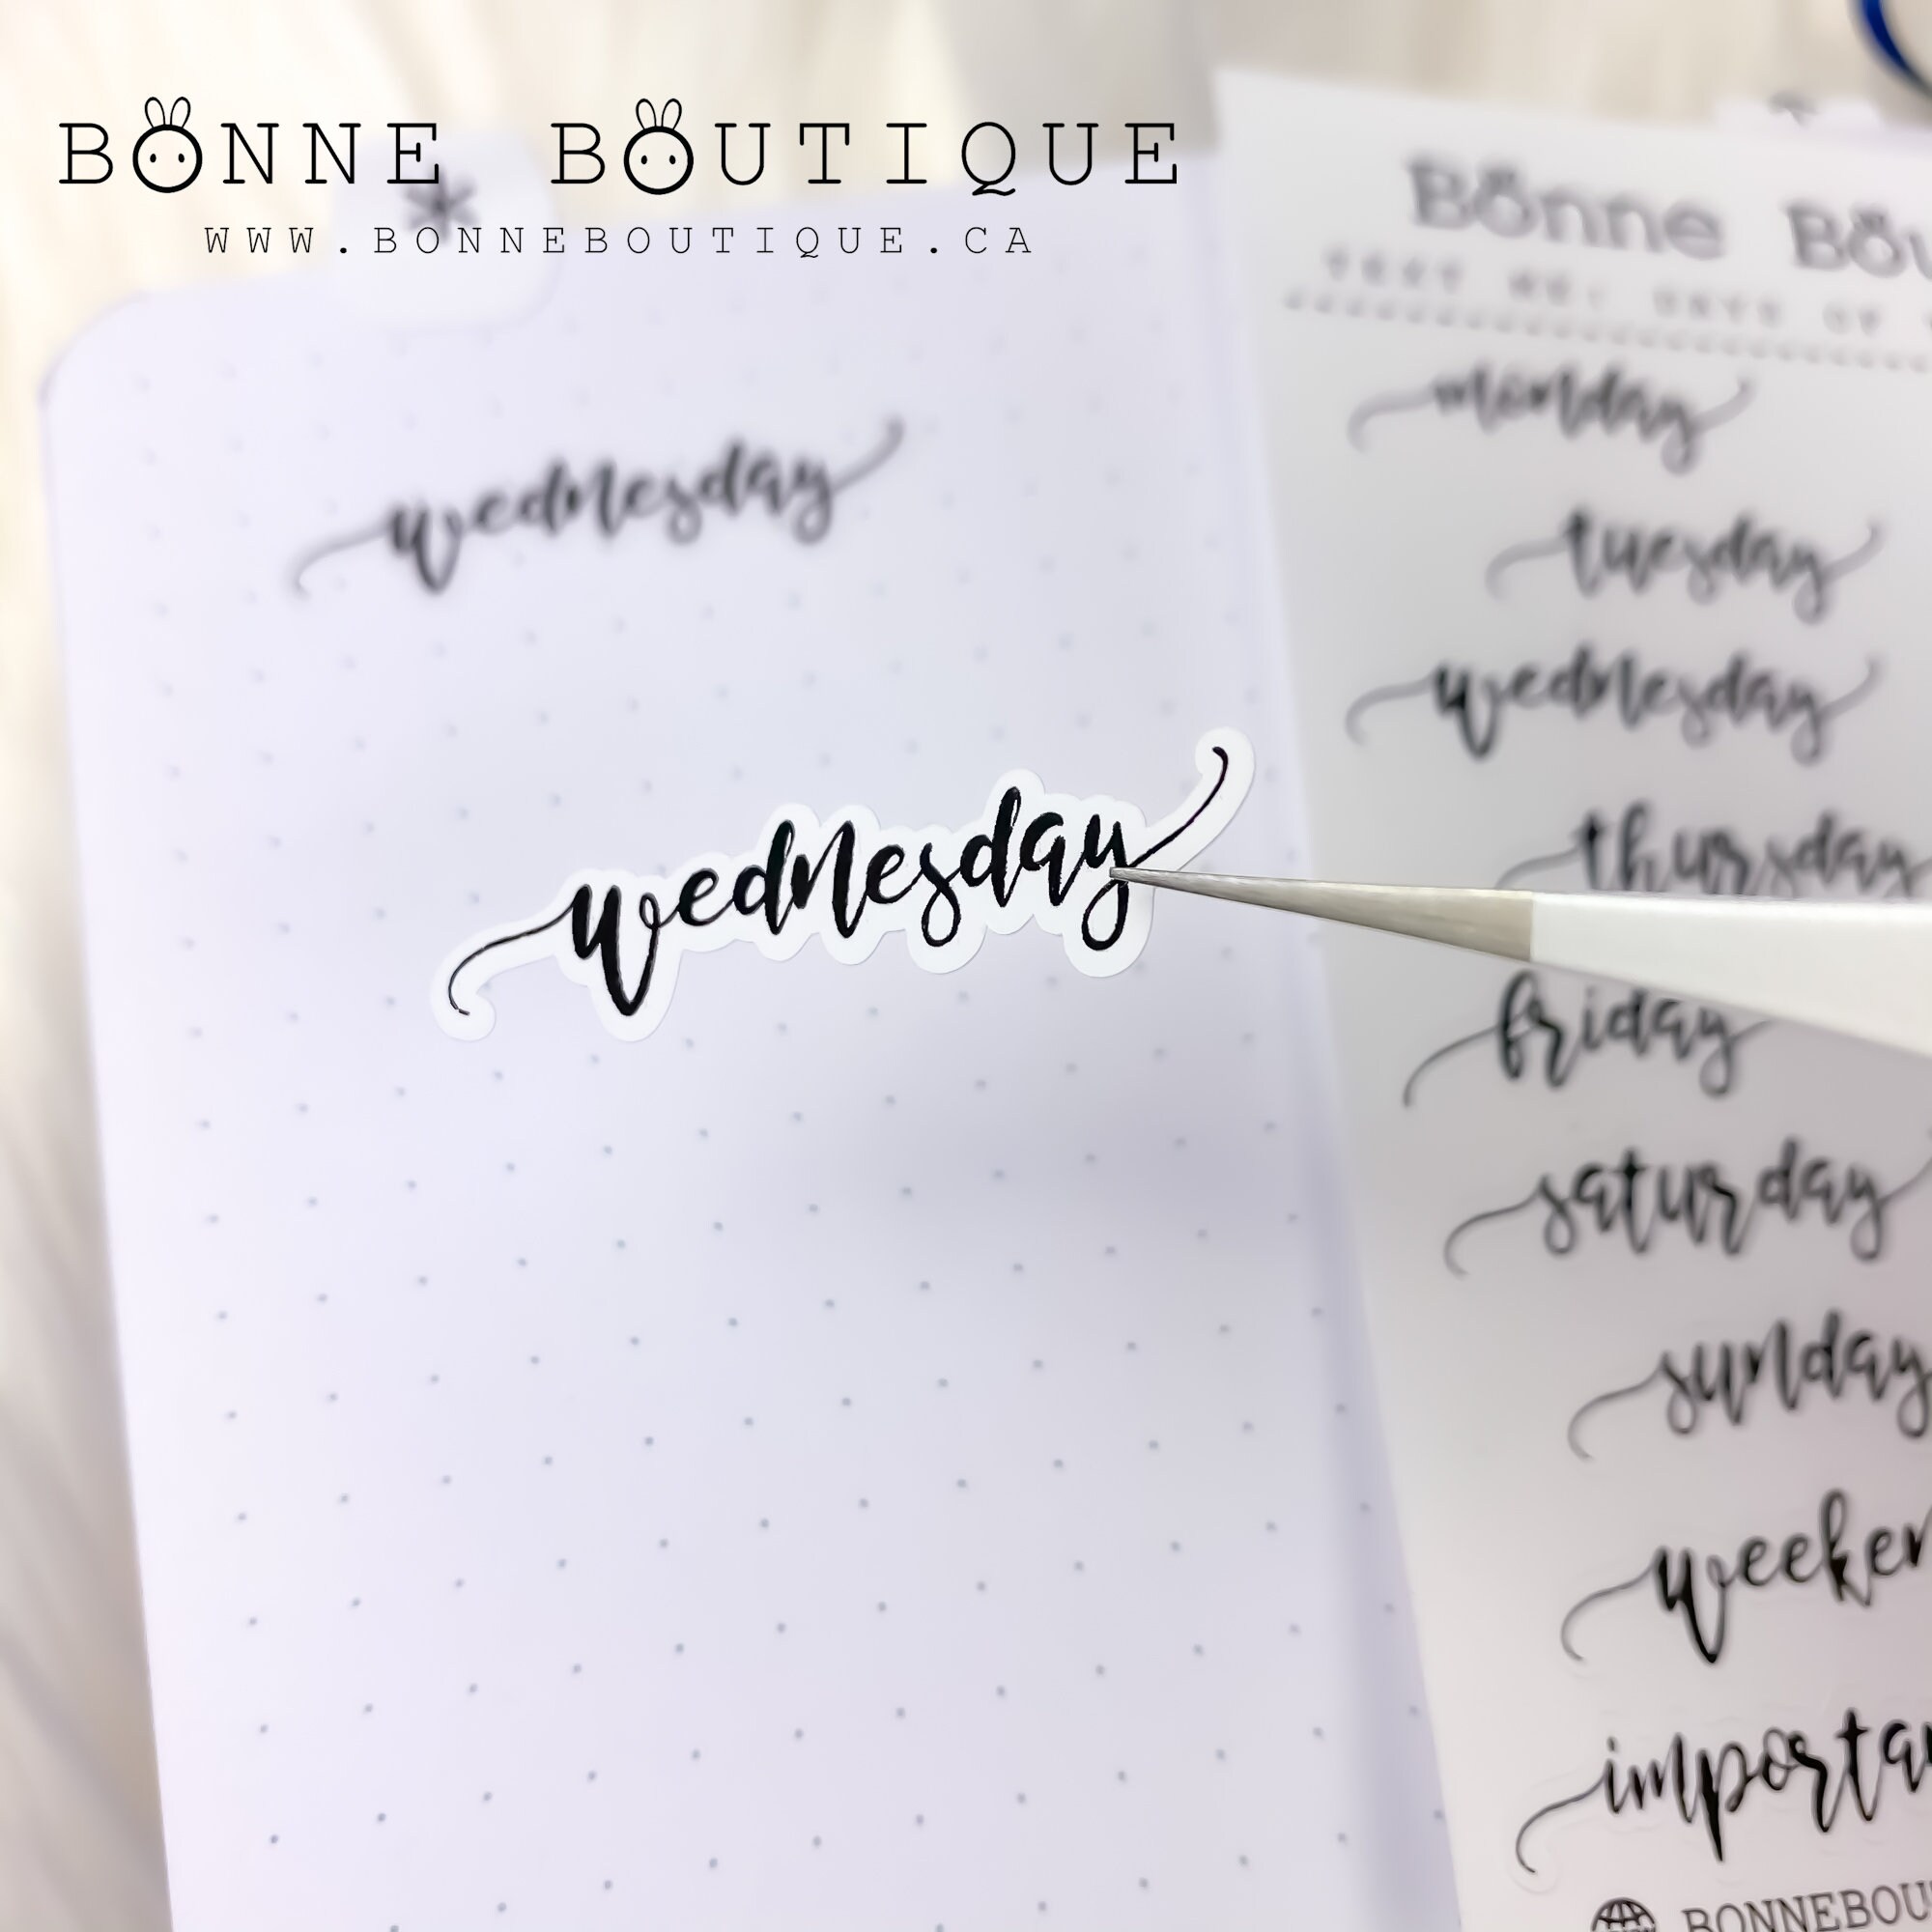 BONNE BOUTIQUE
WWW.BONNEBOUTIQUE.CA
wednesday
wednesday
Bonne Bou
monday
tuesday
wednesday
thursday
friday
saturday
sunday
weeken
importan
BONNEBOU